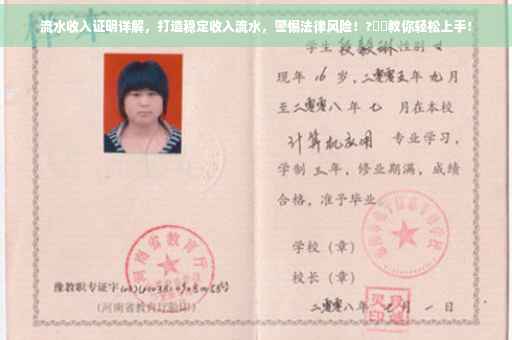 流水收入证明详解，打造稳定收入流水，警惕法律风险！?▯▯教你轻松上手！
样本
学生 段毅琳 性别 女
现年 16 岁，二零零五年 九月
至二零零八年 七 月在本校
计算机应用 专业学习，
学制 三年，修业期满，成绩
合格，准予毕业
学校（章）
校长（章）
二零零八年 七月 一 日
河南省教育厅
豫教职专证字
（河南省教育厅验印）